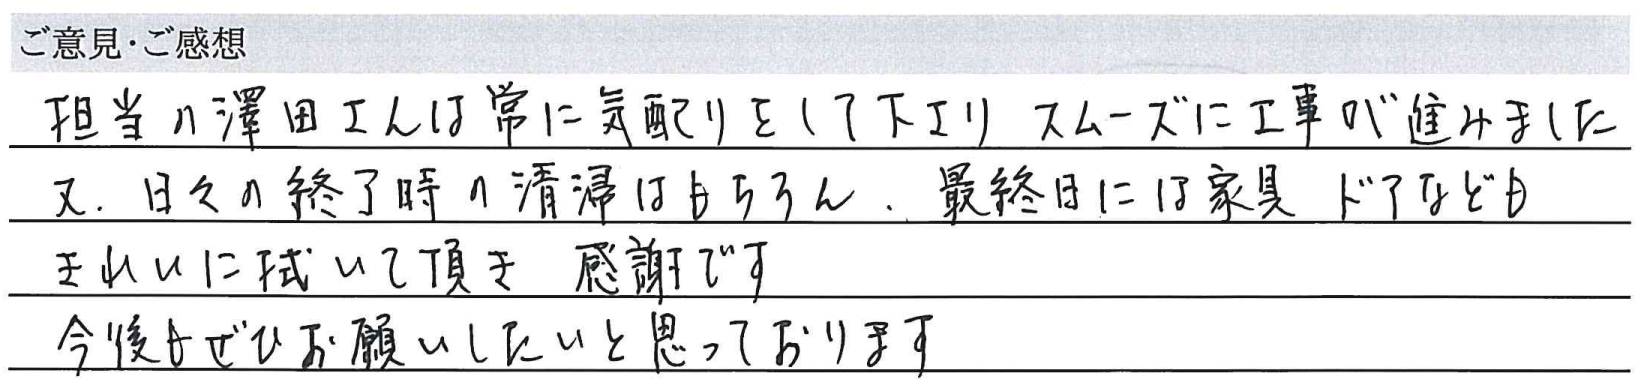 ご意見・ご感想
担当の澤田さんは常に気配りをして下さり スムーズに工事が進みました
又、日々の終了時の清掃はもちろん、最終日には家具 ドアなども
きれいに拭いて頂き 感謝です
今後もぜひお願いしたいと思っております